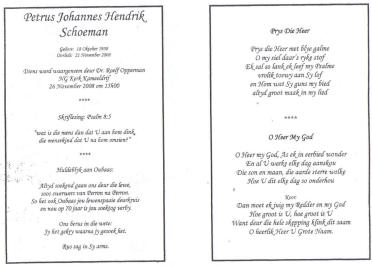 Petrus Johannes Hendrik
Schoeman
Gebore: 18 Oktober 1938
Oorlede: 22 November 2008
Diens word waargeneem deur Dr. Roelf Opperman
NG Kerk Kameeldrif
26 November 2008 om 11h00
****
Skriflesing: Psalm 8:5
"wat is die mens dan dat U aan hom dink,
die mensekind dat U na hom omsien?"
****
Huldeblyk aan Oubaas:
Altyd soekend gaan ons deur die lewe,
soos swerwers van Perron na Perron.
So het ook Oubaas jou lewenspasie deurkruis
en nou op 70 jaar is jou soektog verby.
Ons berus in die wete:
Sy het gekry waarna jy gesoek het.
Rus sag in Sy arms.
Prys Die Heer
Prys die Heer met blye galme
O my siel daar's ryke stof
Ek sal so lank ek leef my Psalme
vrolik toewy aan Sy lof
en Hem wat Sy guns my bied
altyd groot maak in my lied
****
O Heer My God
O Heer my God, As ek in eerbied wonder
En al U werke elke dag aanskou
Die son en maan, die aarde sterre wolke
Hoe U dit elke dag so onderhou
Koor:
Dan moet ek juig my Redder en my God
Hoe groot is U, hoe groot is U
Want deur die hele skepping klink dit saam
O heerlik Heer U Grote Naam.